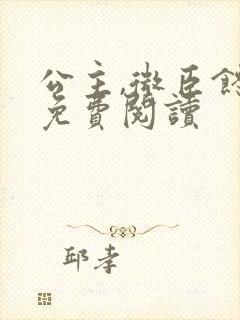 公主,微臣饿
免費閱讀
邱孝